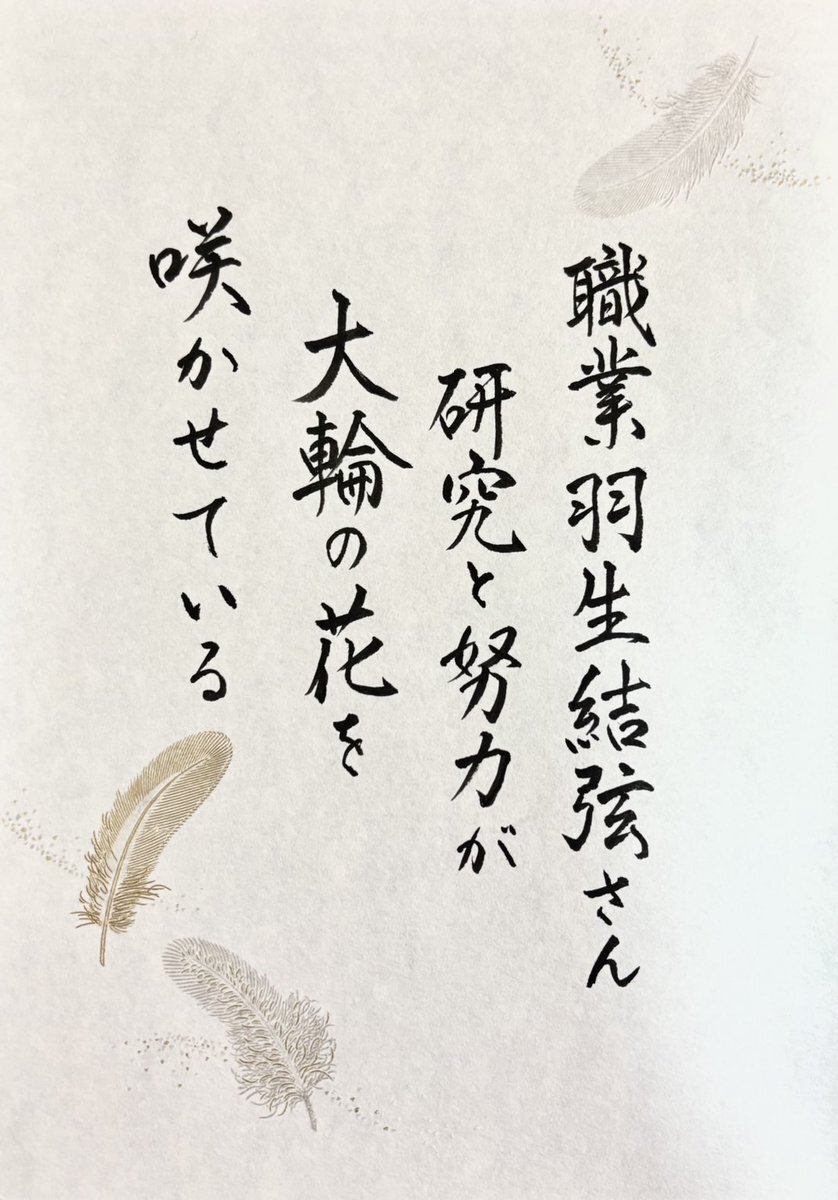 職業羽生結弦さん
研究と努力が
大輪の花を
咲かせている